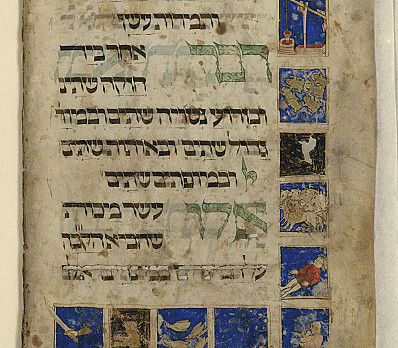 ותמרות עשן
דבר אחר ביד
חזקה שתים
ובזרוע נטויה שתים ובמור
גדול שתים ובאותות שתים
ובמופתים שתים
אלו עשר מכות
שהביא הקבה
על המצרים במצרים